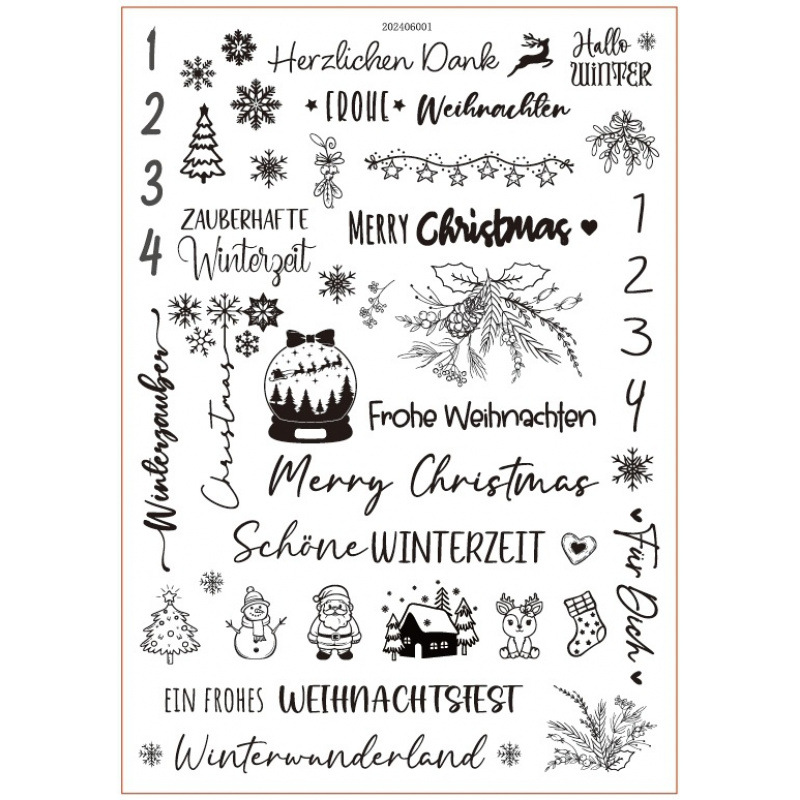 202406001
1
2
3
4
Herzlichen Dank
Hallo
WINTER
FROHE Weihnachten
ZAUBERHAFTE
Winterzeit
MERRY Christmas
1
2
3
4
Winterzauber
Christmas
Frohe Weihnachten
Merry Christmas
Schöne WINTERZEIT
Für Dich
EIN FROHES WEIHNACHTSFEST
Winterwunderland